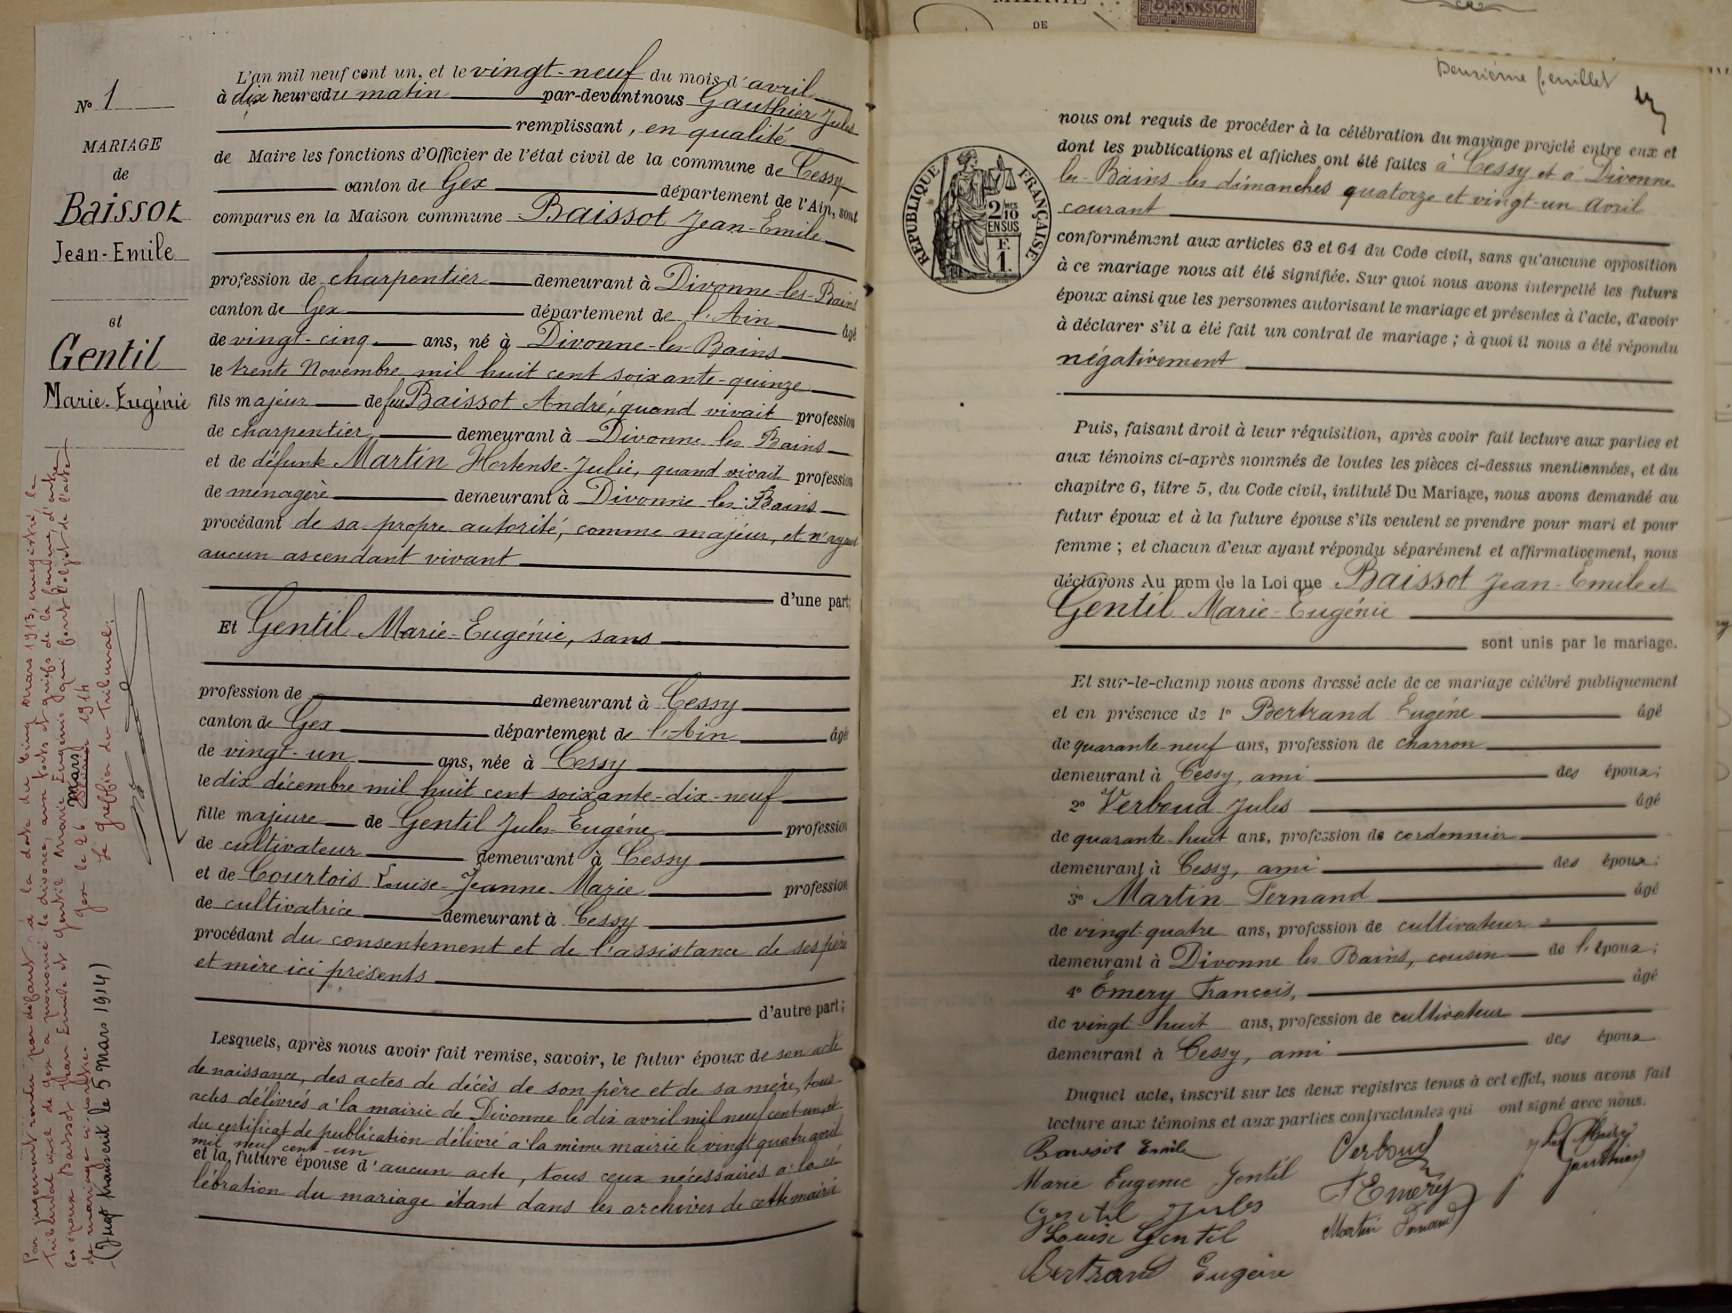 N° 1
MARIAGE
de
Baissot
Jean-Emile
et
Gentil
Marie-Eugénie
Par jugement rendu par défaut à la date du cinq mars 1913, enregistré, le
tribunal civil de Gex a prononcé le divorce, aux torts et griefs de la femme, d'entre
les époux Baissot Jean Emile et Gentil Marie Eugénie qui font l'objet de l'acte
de mariage ci-contre.
Gex le 26 mars 1914
Le greffier du Tribunal.
(Jugt transcrit le 5 mars 1914)
L'an mil neuf cent un, et le vingt-neuf du mois d'avril
à dix heures du matin par-devant nous Gauthier Jules
remplissant, en qualité
de Maire les fonctions d'Officier de l'état civil de la commune de Cessy
canton de Gex département de l'Ain, sont
comparus en la Maison commune Baissot Jean-Emile
profession de charpentier demeurant à Divonne-les-Bains
canton de Gex département de l'Ain âgé
de vingt-cinq ans, né à Divonne-les-Bains
le trente Novembre mil huit cent soixante-quinze
fils majeur de feu Baissot André, quand vivait profession
de charpentier demeurant à Divonne les Bains
et de défunte Martin Hortense-Julie, quand vivait profession
de ménagère demeurant à Divonne les-Bains
procédant de sa propre autorité, comme majeur, et n'ayant
aucun ascendant vivant
d'une part;
Et Gentil Marie-Eugénie, sans
profession de demeurant à Cessy
canton de Gex département de l'Ain âgée
de vingt-un ans, née à Cessy
le dix décembre mil huit cent soixante-dix-neuf
fille majeure de Gentil Jules-Eugène profession
de cultivateur demeurant à Cessy
et de Courtois Louise-Jeanne-Marie profession
de cultivatrice demeurant à Cessy
procédant du consentement et de l'assistance de ses père
et mère ici présents
d'autre part;
Lesquels, après nous avoir fait remise, savoir, le futur époux de son acte
de naissance, des actes de décès de son père et de sa mère, tous
actes délivrés à la mairie de Divonne le dix avril mil neuf cent un, et
du certificat de publication délivré à la même mairie le vingt quatre avril
mil neuf cent-un
et la future épouse d'aucun acte, tous ceux nécessaires à la cé
lébration du mariage étant dans les archives de cette mairie
MAIRIE
DE
DIMENSION
Deuxième feuillet
RÉPUBLIQUE FRANÇAISE
2 MES
2/10
EN SUS
F.
1.
nous ont requis de procéder à la célébration du mariage projeté entre eux et
dont les publications et affiches ont été faites à Cessy et à Divonne
les-Bains les dimanches quatorze et vingt-un avril
courant
conformément aux articles 63 et 64 du Code civil, sans qu'aucune opposition
à ce mariage nous ait été signifiée. Sur quoi nous avons interpellé les futurs
époux ainsi que les personnes autorisant le mariage et présentes à l'acte, d'avoir
à déclarer s'il a été fait un contrat de mariage ; à quoi il nous a été répondu
négativement
Puis, faisant droit à leur réquisition, après avoir fait lecture aux parties et
aux témoins ci-après nommés de toutes les pièces ci-dessus mentionnées, et du
chapitre 6, titre 5, du Code civil, intitulé Du Mariage, nous avons demandé au
futur époux et à la future épouse s'ils veulent se prendre pour mari et pour
femme ; et chacun d'eux ayant répondu séparément et affirmativement, nous
déclarons Au nom de la Loi que Baissot Jean-Emile et
Gentil Marie-Eugénie
sont unis par le mariage.
Et sur-le-champ nous avons dressé acte de ce mariage célébré publiquement
et en présence de 1° Bertrand Eugène âgé
de quarante-neuf ans, profession de charron
demeurant à Cessy, ami des époux;
2° Verboud Jules âgé
de quarante-huit ans, profession de cordonnier
demeurant à Cessy, ami des époux;
3° Martin Fernand âgé
de vingt-quatre ans, profession de cultivateur
demeurant à Divonne les Bains, cousin de l'époux;
4° Emery François, âgé
de vingt-huit ans, profession de cultivateur
demeurant à Cessy, ami des époux
Duquel acte, inscrit sur les deux registres tenus à cet effet, nous avons fait
lecture aux témoins et aux parties contractantes qui ont signé avec nous.
Baissot Emile
Verboud
Marie Eugenie Gentil
F Emery
Gentil Jules
Martin Fernand
Louise Gentil
Bertrand Eugène